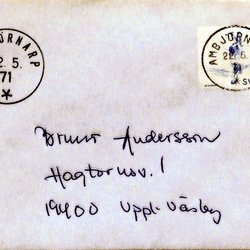 ÖRNARP
2. 5.
71
AMBJÖRNARP
22. 5.
Bruno Andersson
Hagtornsv. 1
19400 Uppl. Väsby